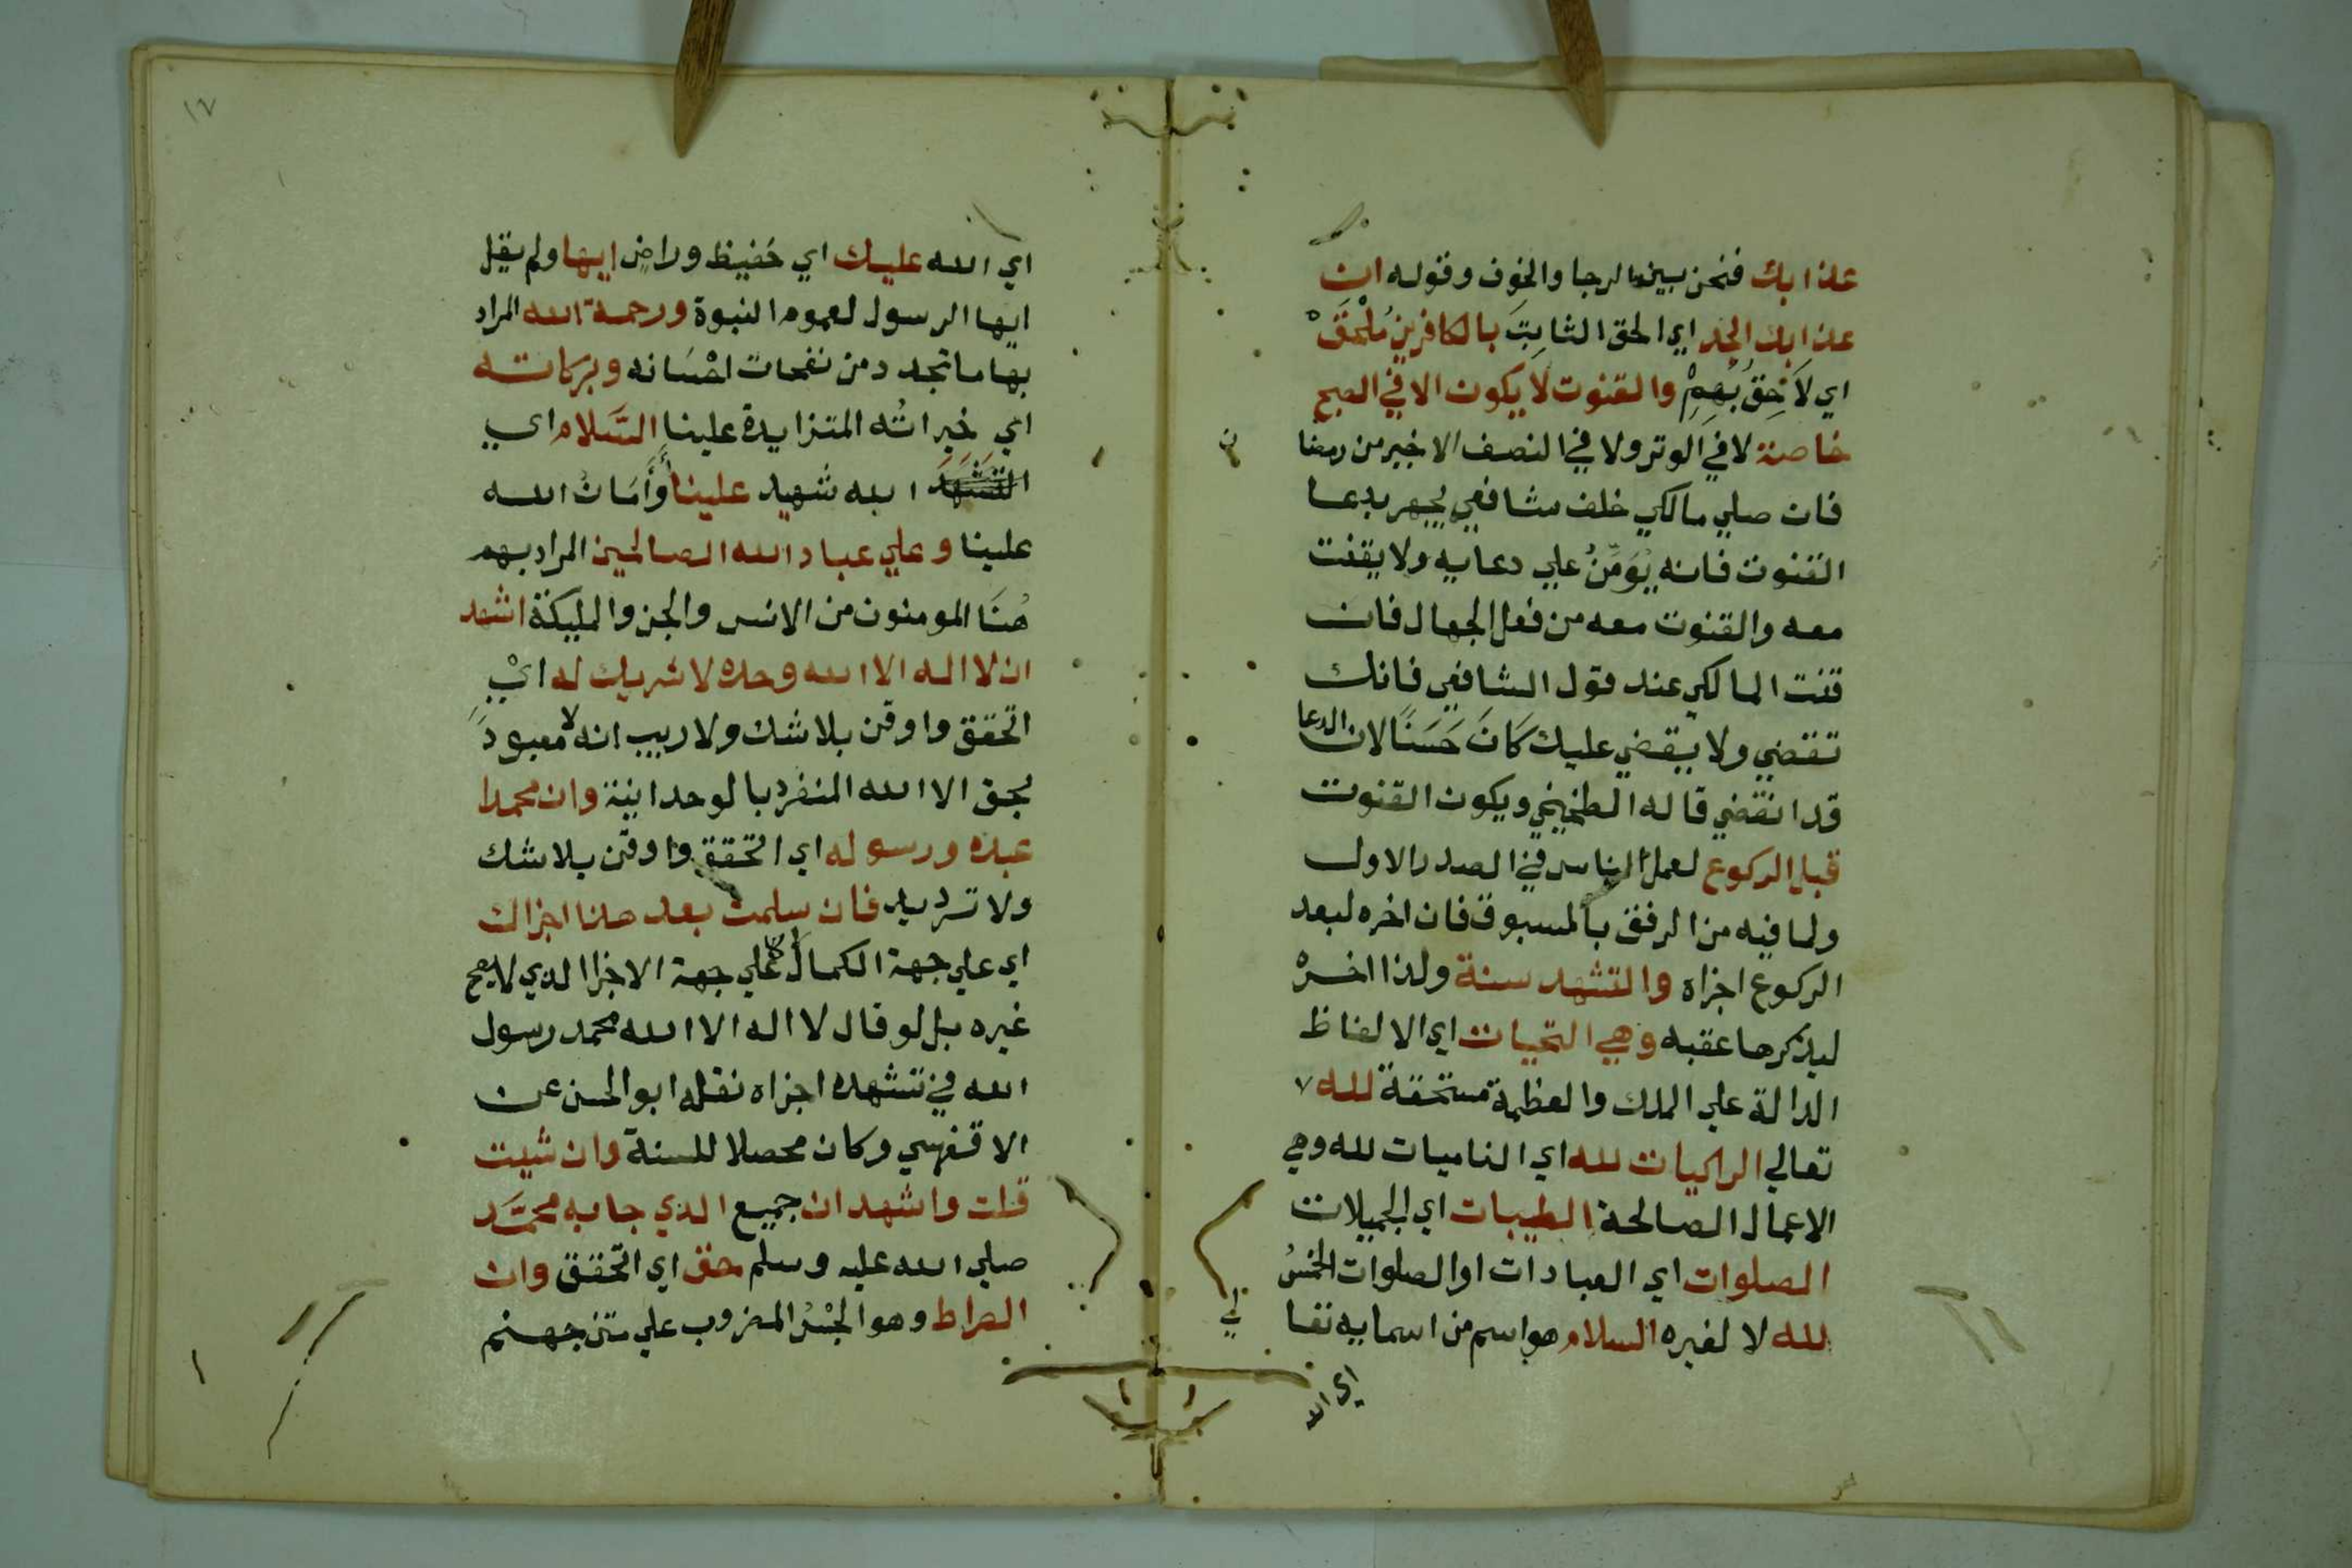 عذابك فنحن بين الرجا والخوف وقوله ان
عذابك الجد اي الحق الثابت بالكافرين ملحق
اي لاحق بهم والقنوت لا يكون الا في الصبح
خاصة لا في الوتر ولا في النصف الاخير من رمضا
ن
فان صلي مالكي خلف شافعي يجهر بدعا
القنوت فانه يؤمن علي دعايه ولا يقنت
معه والقنوت معه من فعل الجهال فان
قنت المالكي عند قول الشافعي فانك
تقضي ولا يقضي عليك كان حسنا لان الدعا
قد انقضي قاله الطخيخي ويكون القنوت
قبل الركوع لعمل الناس في الصدر الاول
ولما فيه من الرفق بالمسبوق فان اخره لبعد
الركوع اجزاه والتشهد سنة ولذا اخره
ليذكرها عقبه وهي التحيات اي الالفاظ
الدالة علي الملك والعظمة مستحقة لله
تعالي الزاكيات لله اي الناميات لله وهي
الاعمال الصالحة الطيبات اي الجميلات
الصلوات اي العبادات او الصلوات الخمس
لله لا لغيره السلام هو اسم من اسمايه تعا
لي
اي الله
١٧
اي الله عليك اي حفيظ وراض ايها ولم يقل
ايها الرسول لعموم النبوة ورحمة الله المراد
بها ما تجدد من نفحات احسانه وبركاته
اي خيراته المتزايدة علينا السلام اي
التشهد الله شهيد علينا وأمان الله
علينا وعلي عباد الله الصالحين المراد بهم
هنا المومنون من الانس والجن والمليكة اشهد
ان لا اله الا الله وحده لا شريك له اي
اتحقق واوقن بلا شك ولا ريب انه لا معبود
بحق الا الله المنفرد بالوحدانية وان محمدا
عبده ورسوله اي اتحقق واوقن بلا شك
ولا ترديد فان سلمت بعد هذا اجزاك
اي علي جهة الكمال لا علي جهة الاجزا الذي لا يصح
غيره بل لو قال لا اله الا الله محمد رسول
الله في تشهده اجزاه نقله ابو الحسن عن
الاقفهسي وكان محصلا للسنة وان شيت
قلت واشهد ان جميع الذي جا به محمد
صلي الله عليه وسلم حق اي اتحقق وان
الصراط وهو الجسر المضروب علي متن جهنم